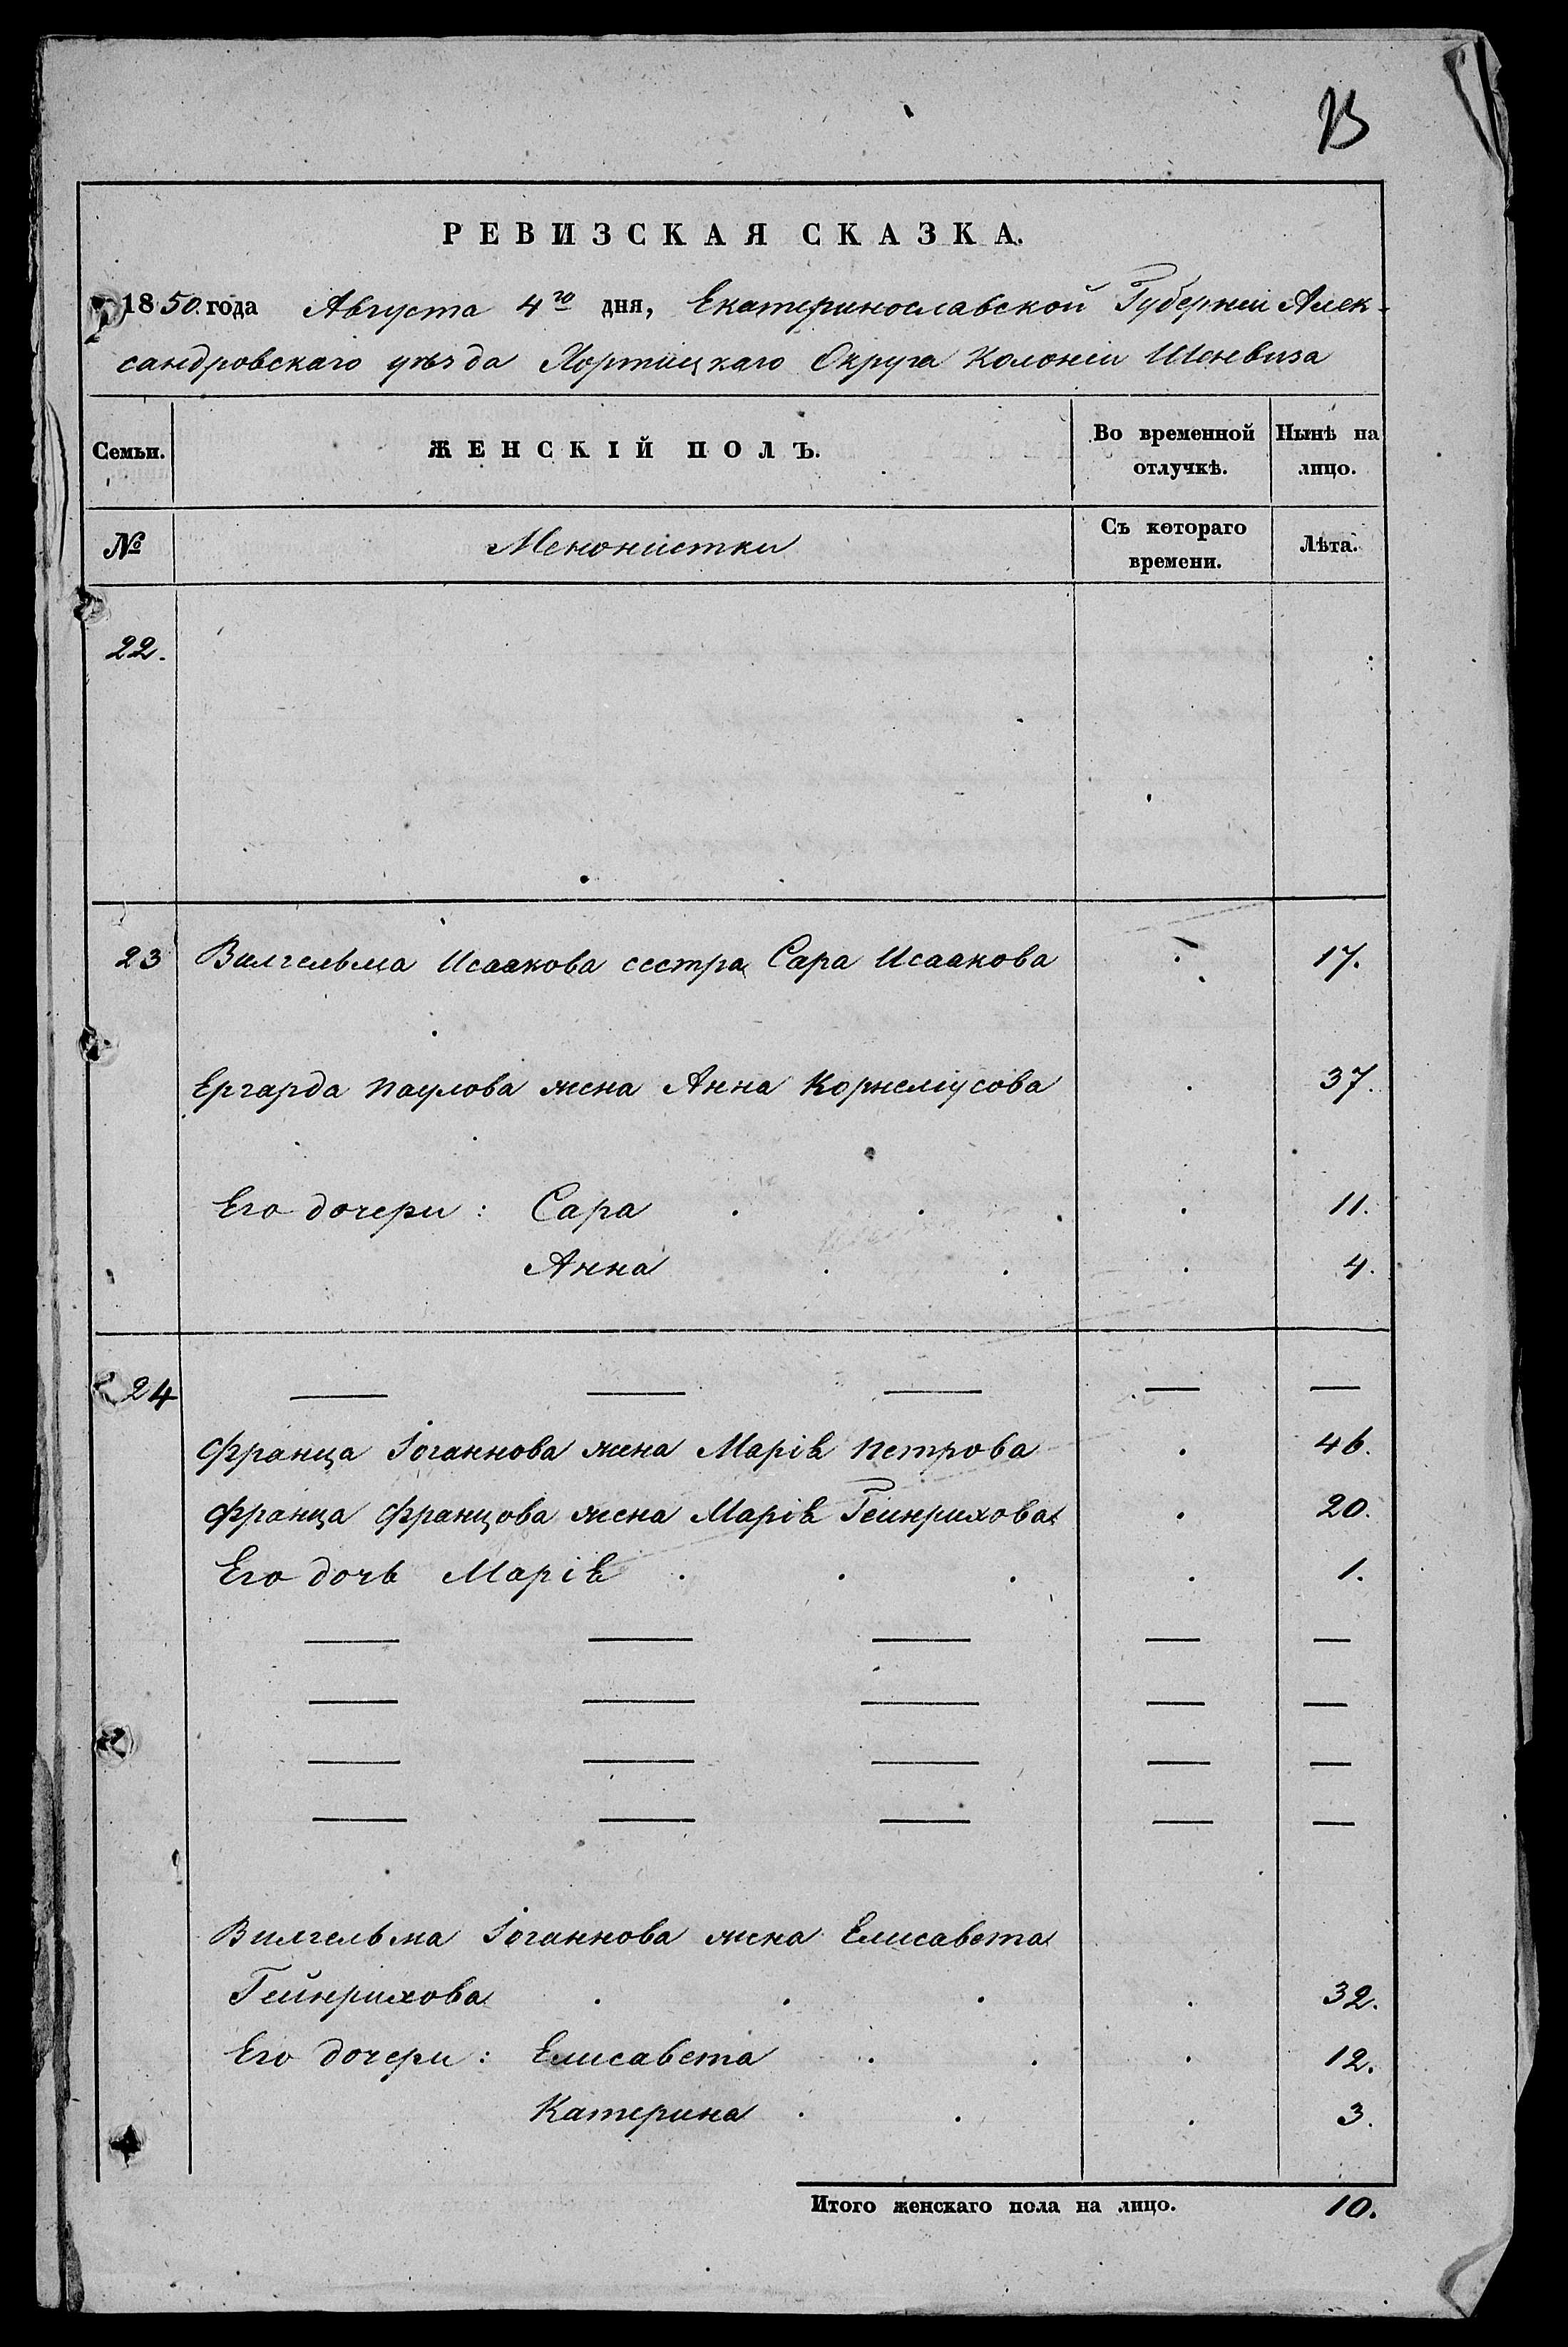 13
РЕВИЗСКАЯ СКАЗКА.
1850. года Августа 4го дня, Екатеринославской Губерніи Алек-
сандровскаго уѣзда Хортицкаго Округа Колоніи Шенвиза
Семьи. ЖЕНСКІЙ ПОЛЪ. Во временной отлучкѣ. Нынѣ на лицо.
№ Менонистки Съ котораго времени. Лѣта.
22.
23 Вилгельма Исаакова сестра Сара Исаакова 17.
Ергарда Паулова жена Анна Корнеліусова 37.
Его дочери: Сара 11.
Анна 4.
24 — — — — —
Франца Іоганнова жена Марія Петрова 46.
Франца Францова жена Марія Гейнрихова 20.
Его дочь Марія 1.
— — — — —
— — — — —
— — — — —
— — — — —
Вилгельма Іоганнова жена Елисавета
Гейнрихова 32.
Его дочери: Елисавета 12.
Катерина 3.
Итого женскаго пола на лицо. 10.